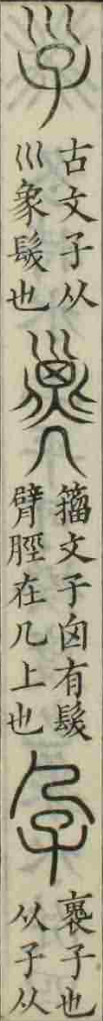 㜽
古文子从
巛象髮也
𢀇
籀文子囟有髮
臂脛在几上也
孕
裹子也
从子从